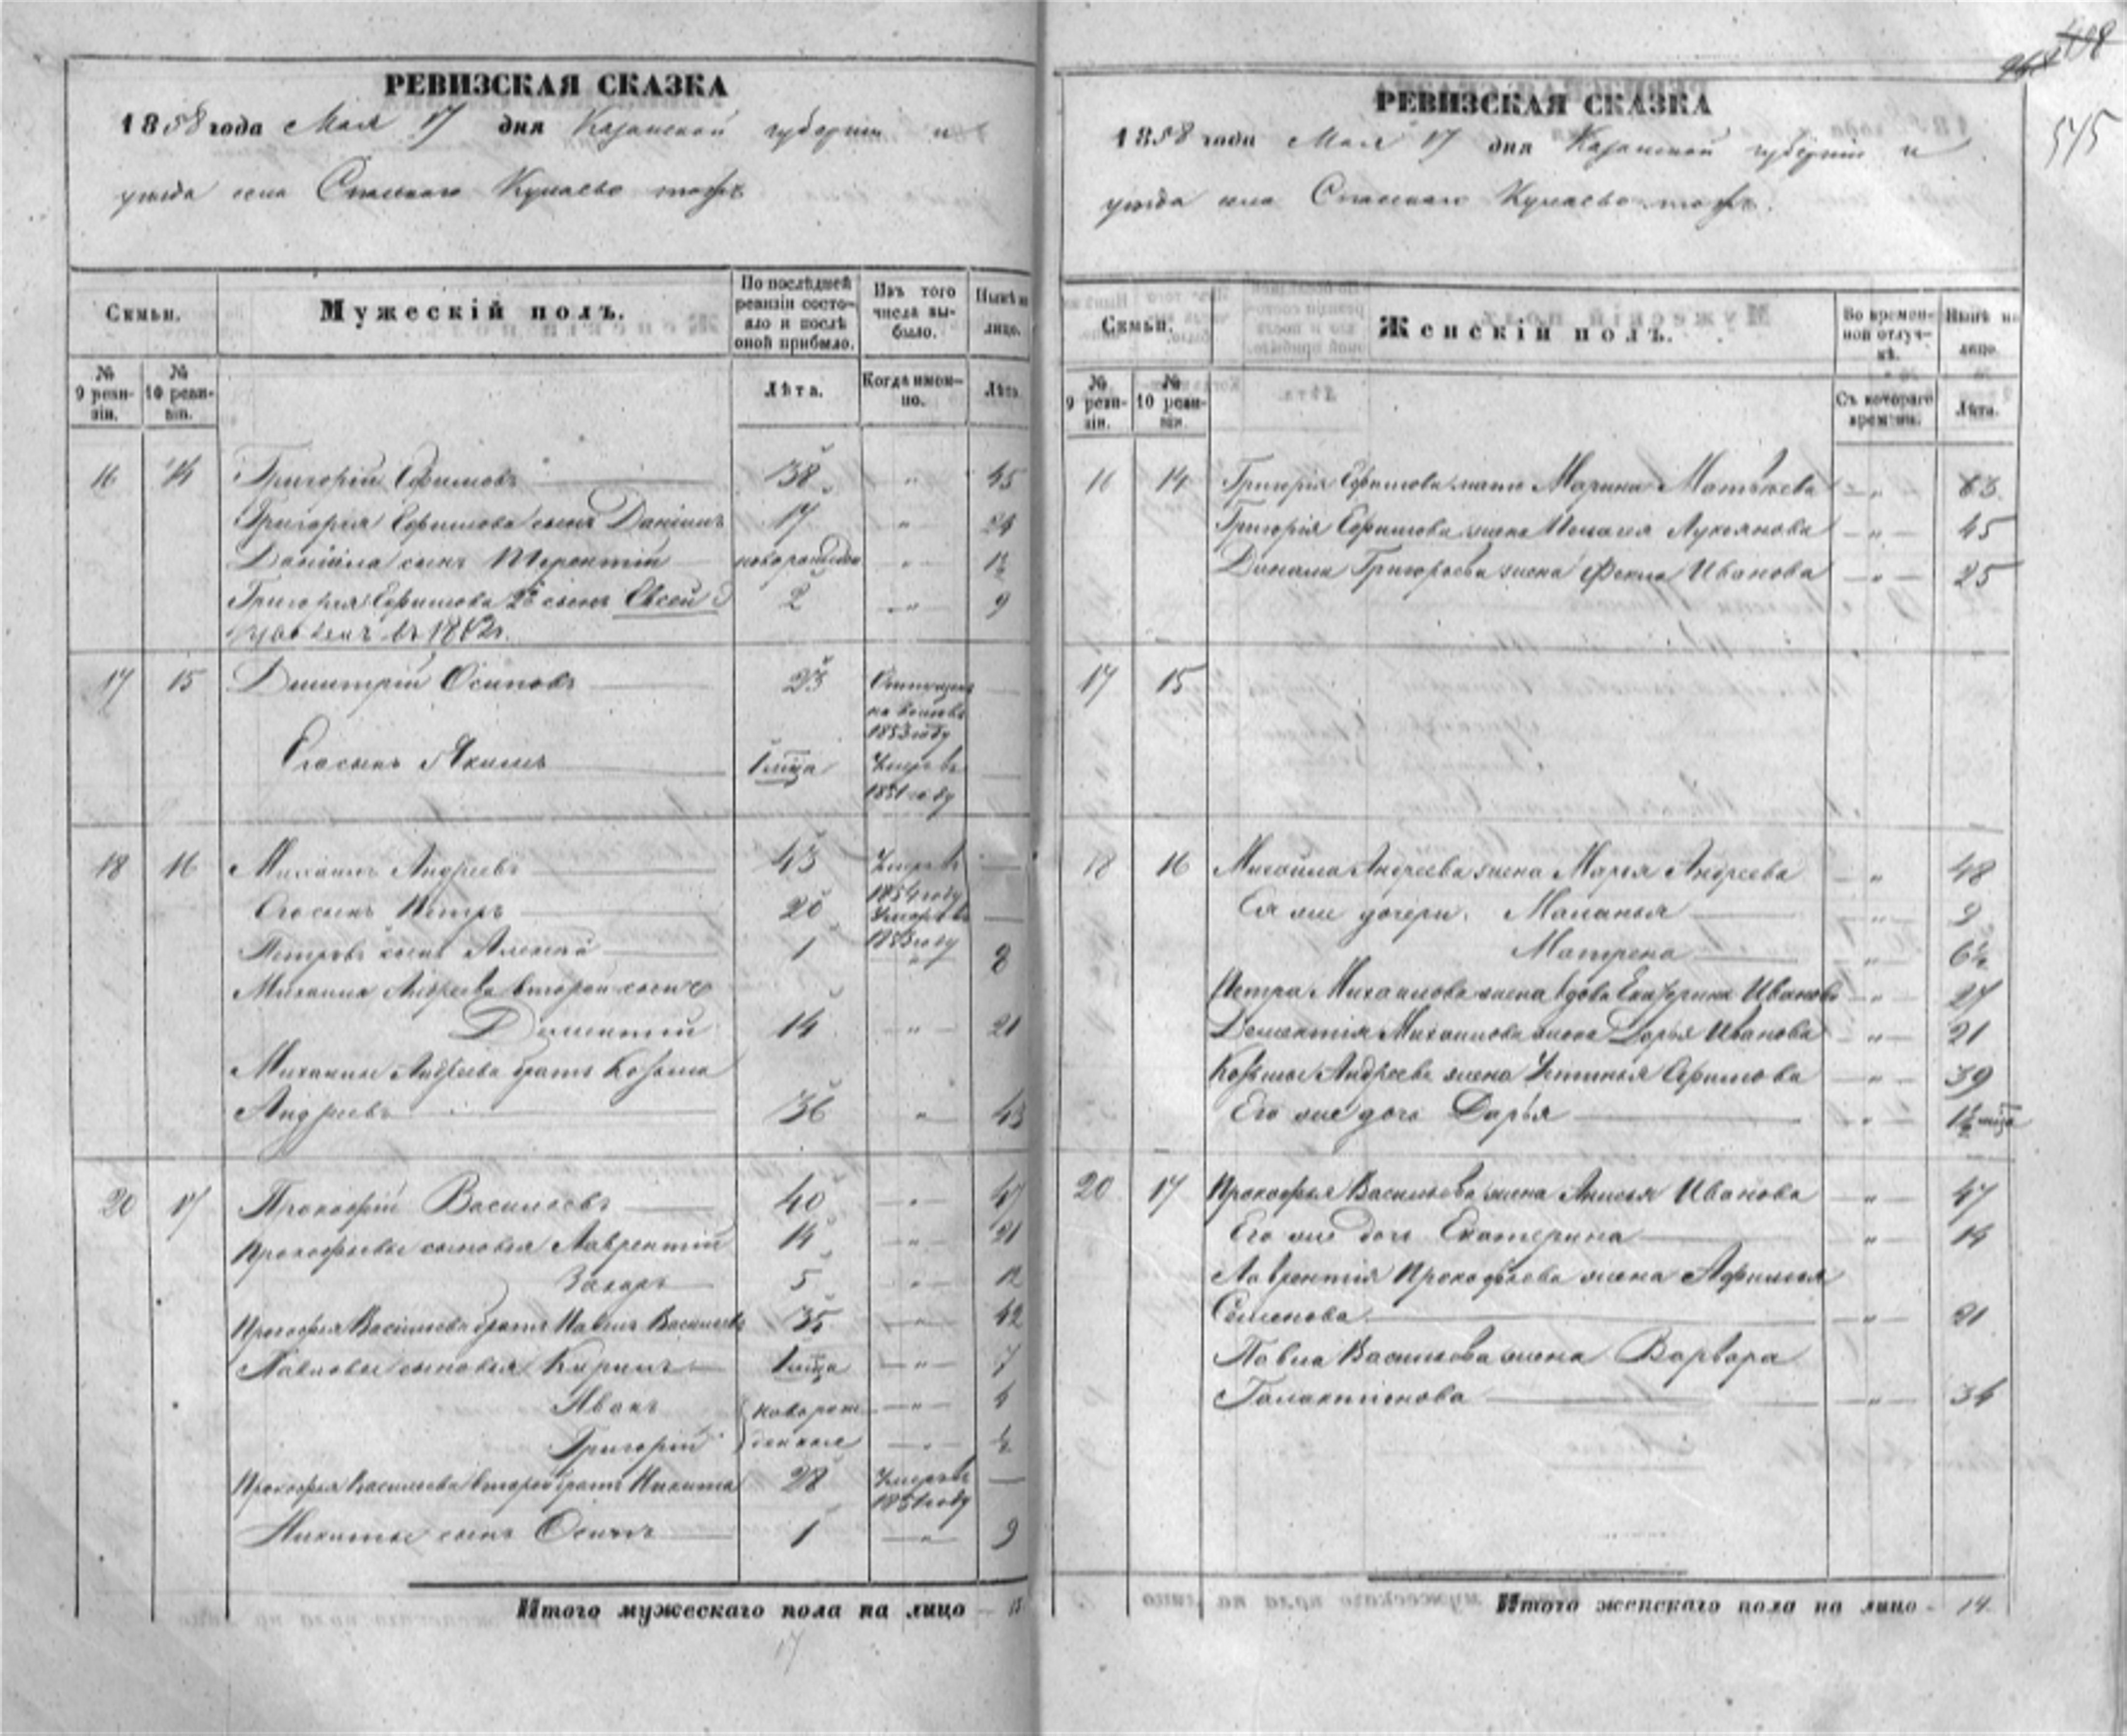 408
515
РЕВИЗСКАЯ СКАЗКА
1858 года Мая 17 дня Казанской губернии и
уезда села Спаского Кулаево тожъ
Семьи.
Мужескій полъ.
По послѣдней ревизіи состо-яло и послѣ оной прибыло.
Изъ того числа вы-было.
Нынѣ на лицо.
№ 9 реви-зіи.
№ 10 реви-зіи.
Лѣта.
Когда имен-но.
Лѣта
16 14 Григорій Ефимовъ 38 " 45
Григорія Ефимова сынъ Данiилъ 17 " 24
Данiила сынъ Терентій новорожден " 1½
Григорія Ефимова 2й сынъ Евсей 2 " 9
17 15 Димитрій Осиповъ 23
1853 году
Его сынъ Якимъ 1 мца Умеръ въ
1851 году
18 16 Михаилъ Андреевъ 43 Умеръ въ
1854 году
Его сынъ Петръ 20 Умеръ въ
1853 году
Петровъ сынъ Алексей 1 " 8
Михаила Андреева второй сынъ
Дементій 14 " 21
Михаила Андреева братъ Козьма
Андреевъ 36 " 43
20 17 Прокофій Васильевъ 40 " 47
Прокофьевы сыновья Лаврентій 14 " 21
Захаръ 5 " 12
Прокофья Васильева братъ Павелъ Васильевъ 35 " 42
Павловы сыновья Кирилъ 1 мца " 7
Иванъ новорож " 4
Григорій денные " ½
Прокофья Васильева второй братъ Никита 28 Умеръ въ
1851 году
Никиты сынъ Осипъ 1 " 9
Итого мужескаго пола на лицо
17
РЕВИЗСКАЯ СКАЗКА
1858 года Мая 17 дня Казанской губерніи и
уезда села Спаскаго Кулаево тожъ.
Семьи.
Женскій полъ.
Во времен-ной отлуч-кѣ.
Нынѣ на лицо.
№ 9 реви-зіи.
№ 10 реви-зіи.
Съ котораго времени.
Лѣта.
16 14 Григорія Ефимова мать Марина Матвѣева " 63
Григорія Ефимова жена Пелагея Лукоянова " 45
Данила Григорьева жена Фекла Иванова " 25
17 15
18 16 Михайла Андреева жена Марья Андреева " 48
Ея же дочери: Маланья " 9
Матрена " 6½
Петра Михаилова жена вдова Екатерина Иванова " 27
Дементія Михаилова жена Дарья Иванова " 21
Козьмы Андреева жена Устинья Ефимова " 39
Его же дочь Дарья " 1½ мца
20 17 Прокофья Васильева жена Анисья Иванова " 47
Его же дочь Екатерина " 14
Лаврентія Прокофьева жена Афимья
Семенова " 21
Павла Васильева жена Варвара
Галактионова " 34
Итого женскаго пола на лицо 14